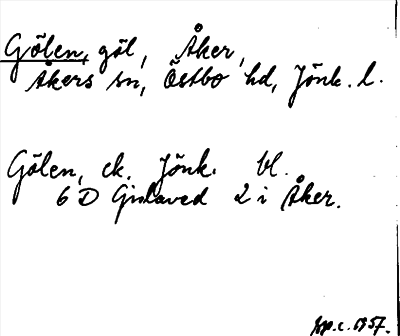 Gölen, göl, Åker,
Åkers sn, Östbo hd, Jönk. l.
Gölen, ek. Jönk. bl.
6 D Gislaved 2 i Åker.
1957.